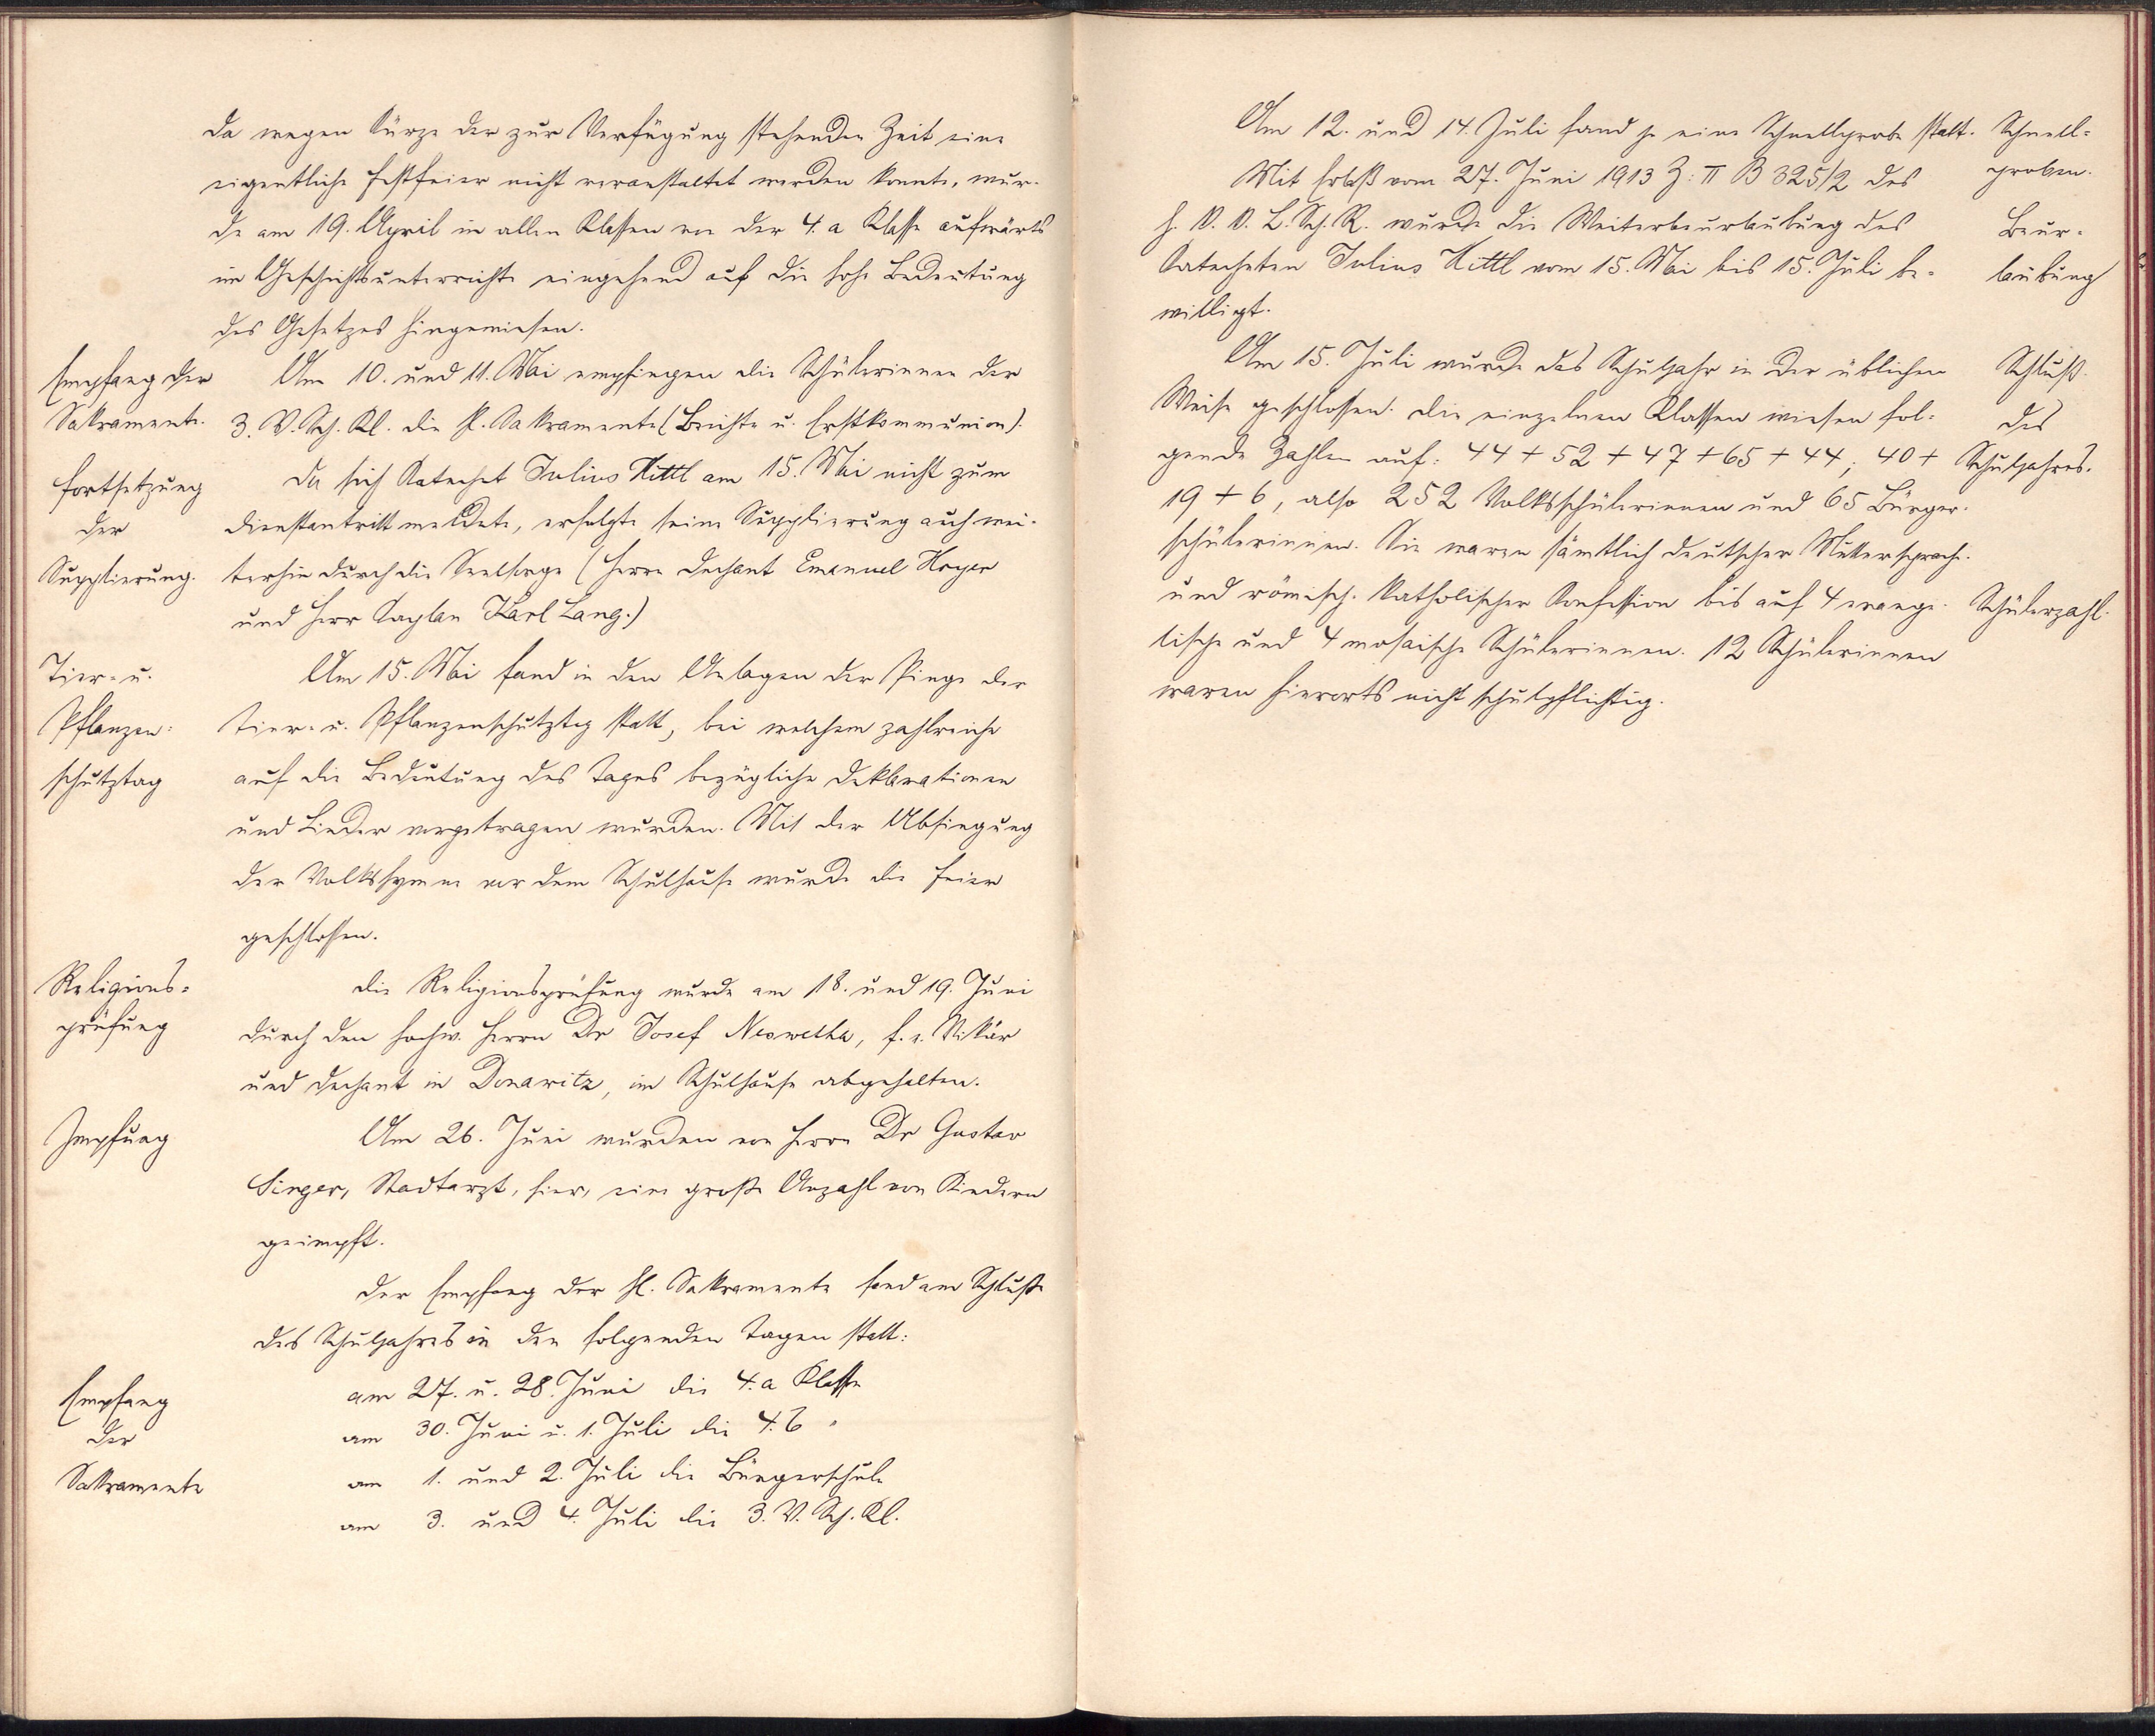 Da wegen Kürze der zur Verfügung stehenden Zeit eine
eigentliche Festfeier nicht veranstaltet werden konnte, wur-
de am 19. April in allen Klassen von der 4. a Klasse aufwärts
im Geschichtsunterrichte eingehend auf die hohe Bedeutung
des Gesetzes hingewiesen.
Empfang der
Sakramente.
Am 10. und 11. Mai empfingen die Schülerinnen der
3. V. Sch. Kl. die hl. Sakramente (Beichte u. Erstkommunion).
Fortsetzung
der
Supplierung.
Da sich Katechet Julius Kittl am 15. Mai nicht zum
Dienstantritt meldete, erfolgte seine Supplierung auch wei-
terhin durch die Seelsorge (Herrn Dechant Emanuel Hoyer
und Herr Kaplan Karl Lang.)
Tier- u.
Pflanzen-
schutztag
Am 15. Mai fand in den Anlagen der Pinge der
Tier- u. Pflanzenschutztag statt, bei welchem zahlreiche
auf die Bedeutung des Tages bezügliche Deklamationen
und Lieder vorgetragen wurden. Mit der Absingung
der Volkshymne vor dem Schulhause wurde die Feier
geschlossen.
Religions-
prüfung
Die Religionsprüfung wurde am 18. und 19. Juni
durch den hochw. Herrn Dr Josef Neswetha, f. e. Vikär
und Dechant in Donawitz, im Schulhause abgehalten.
Impfung
Am 26. Juni wurden von Herrn Dr Gustav
Singer, Stadtarzt, hier, eine große Anzahl von Kindern
geimpft.
Der Empfang der hl. Sakramente fand am Schluße
des Schuljahres in den folgenden Tagen statt:
Empfang
der
Sakramente
am 27. u. 28. Juni die 4. a Klasse
am 30. Juni u. 1. Juli die 4. b "
am 1. und 2. Juli die Bürgerschule
am 3. und 4. Juli die 3. V. Sch. Kl.
Am 12. und 14. Juli fand je eine Schnellprobe statt.
Schnell-
proben.
Mit Erlaß vom 27. Juni 1913 Z: II B 325/2 des
h. k. k. L. Sch. R. wurde die Weiterbeurlaubung des
Katecheten Julius Kittl vom 15. Mai bis 15. Juli be-
willigt.
Beur-
laubung
Am 15. Juli wurde das Schuljahr in der üblichen
Weise geschlossen. Die einzelnen Klassen wiesen fol-
gende Zahlen auf: 44 + 52 + 47 + 65 + 44; 40 +
19 + 6, also 252 Volksschülerinnen und 65 Bürger-
schülerinnen. Sie waren sämtlich deutscher Muttersprache
und römisch-katholischer Konfession bis auf 4 evange-
lische und 4 mosaische Schülerinnen. 12 Schülerinnen
waren hierorts nicht schulpflichtig.
Schluß
des
Schuljahres.
Schülerzahl.